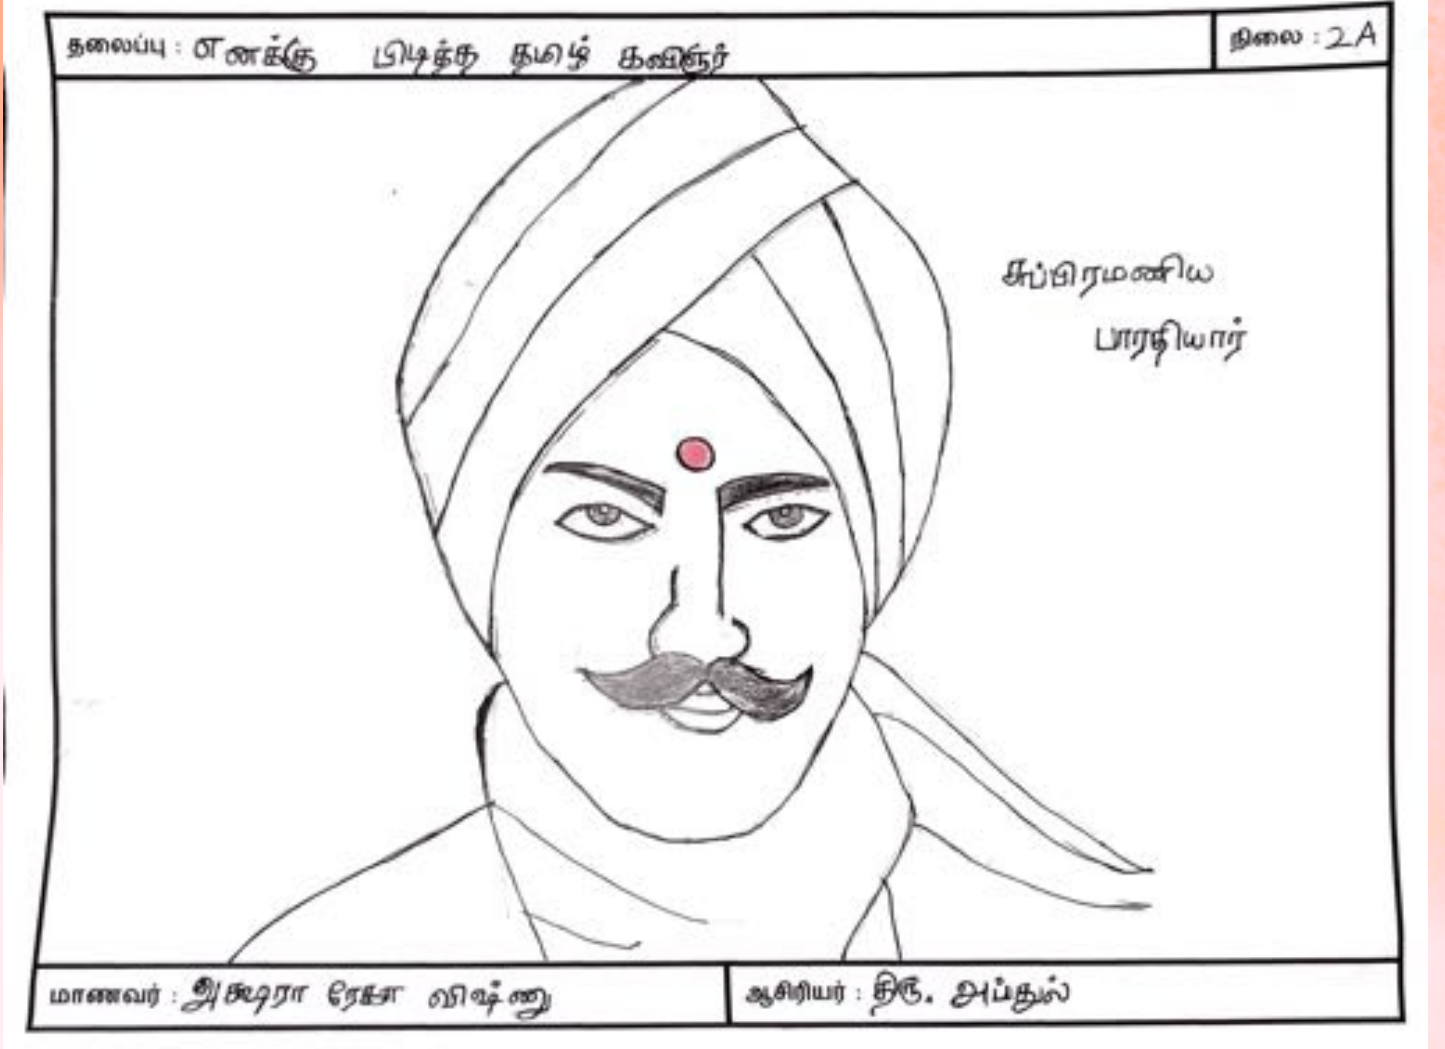 தலைப்பு : எனக்கு பிடித்த தமிழ் கவிஞர்
நிலை : 2A
சுப்பிரமணிய
பாரதியார்
மாணவர் : அக்ஷரா ரேகா விஷ்ணு
ஆசிரியர் : திரு. அப்துல்